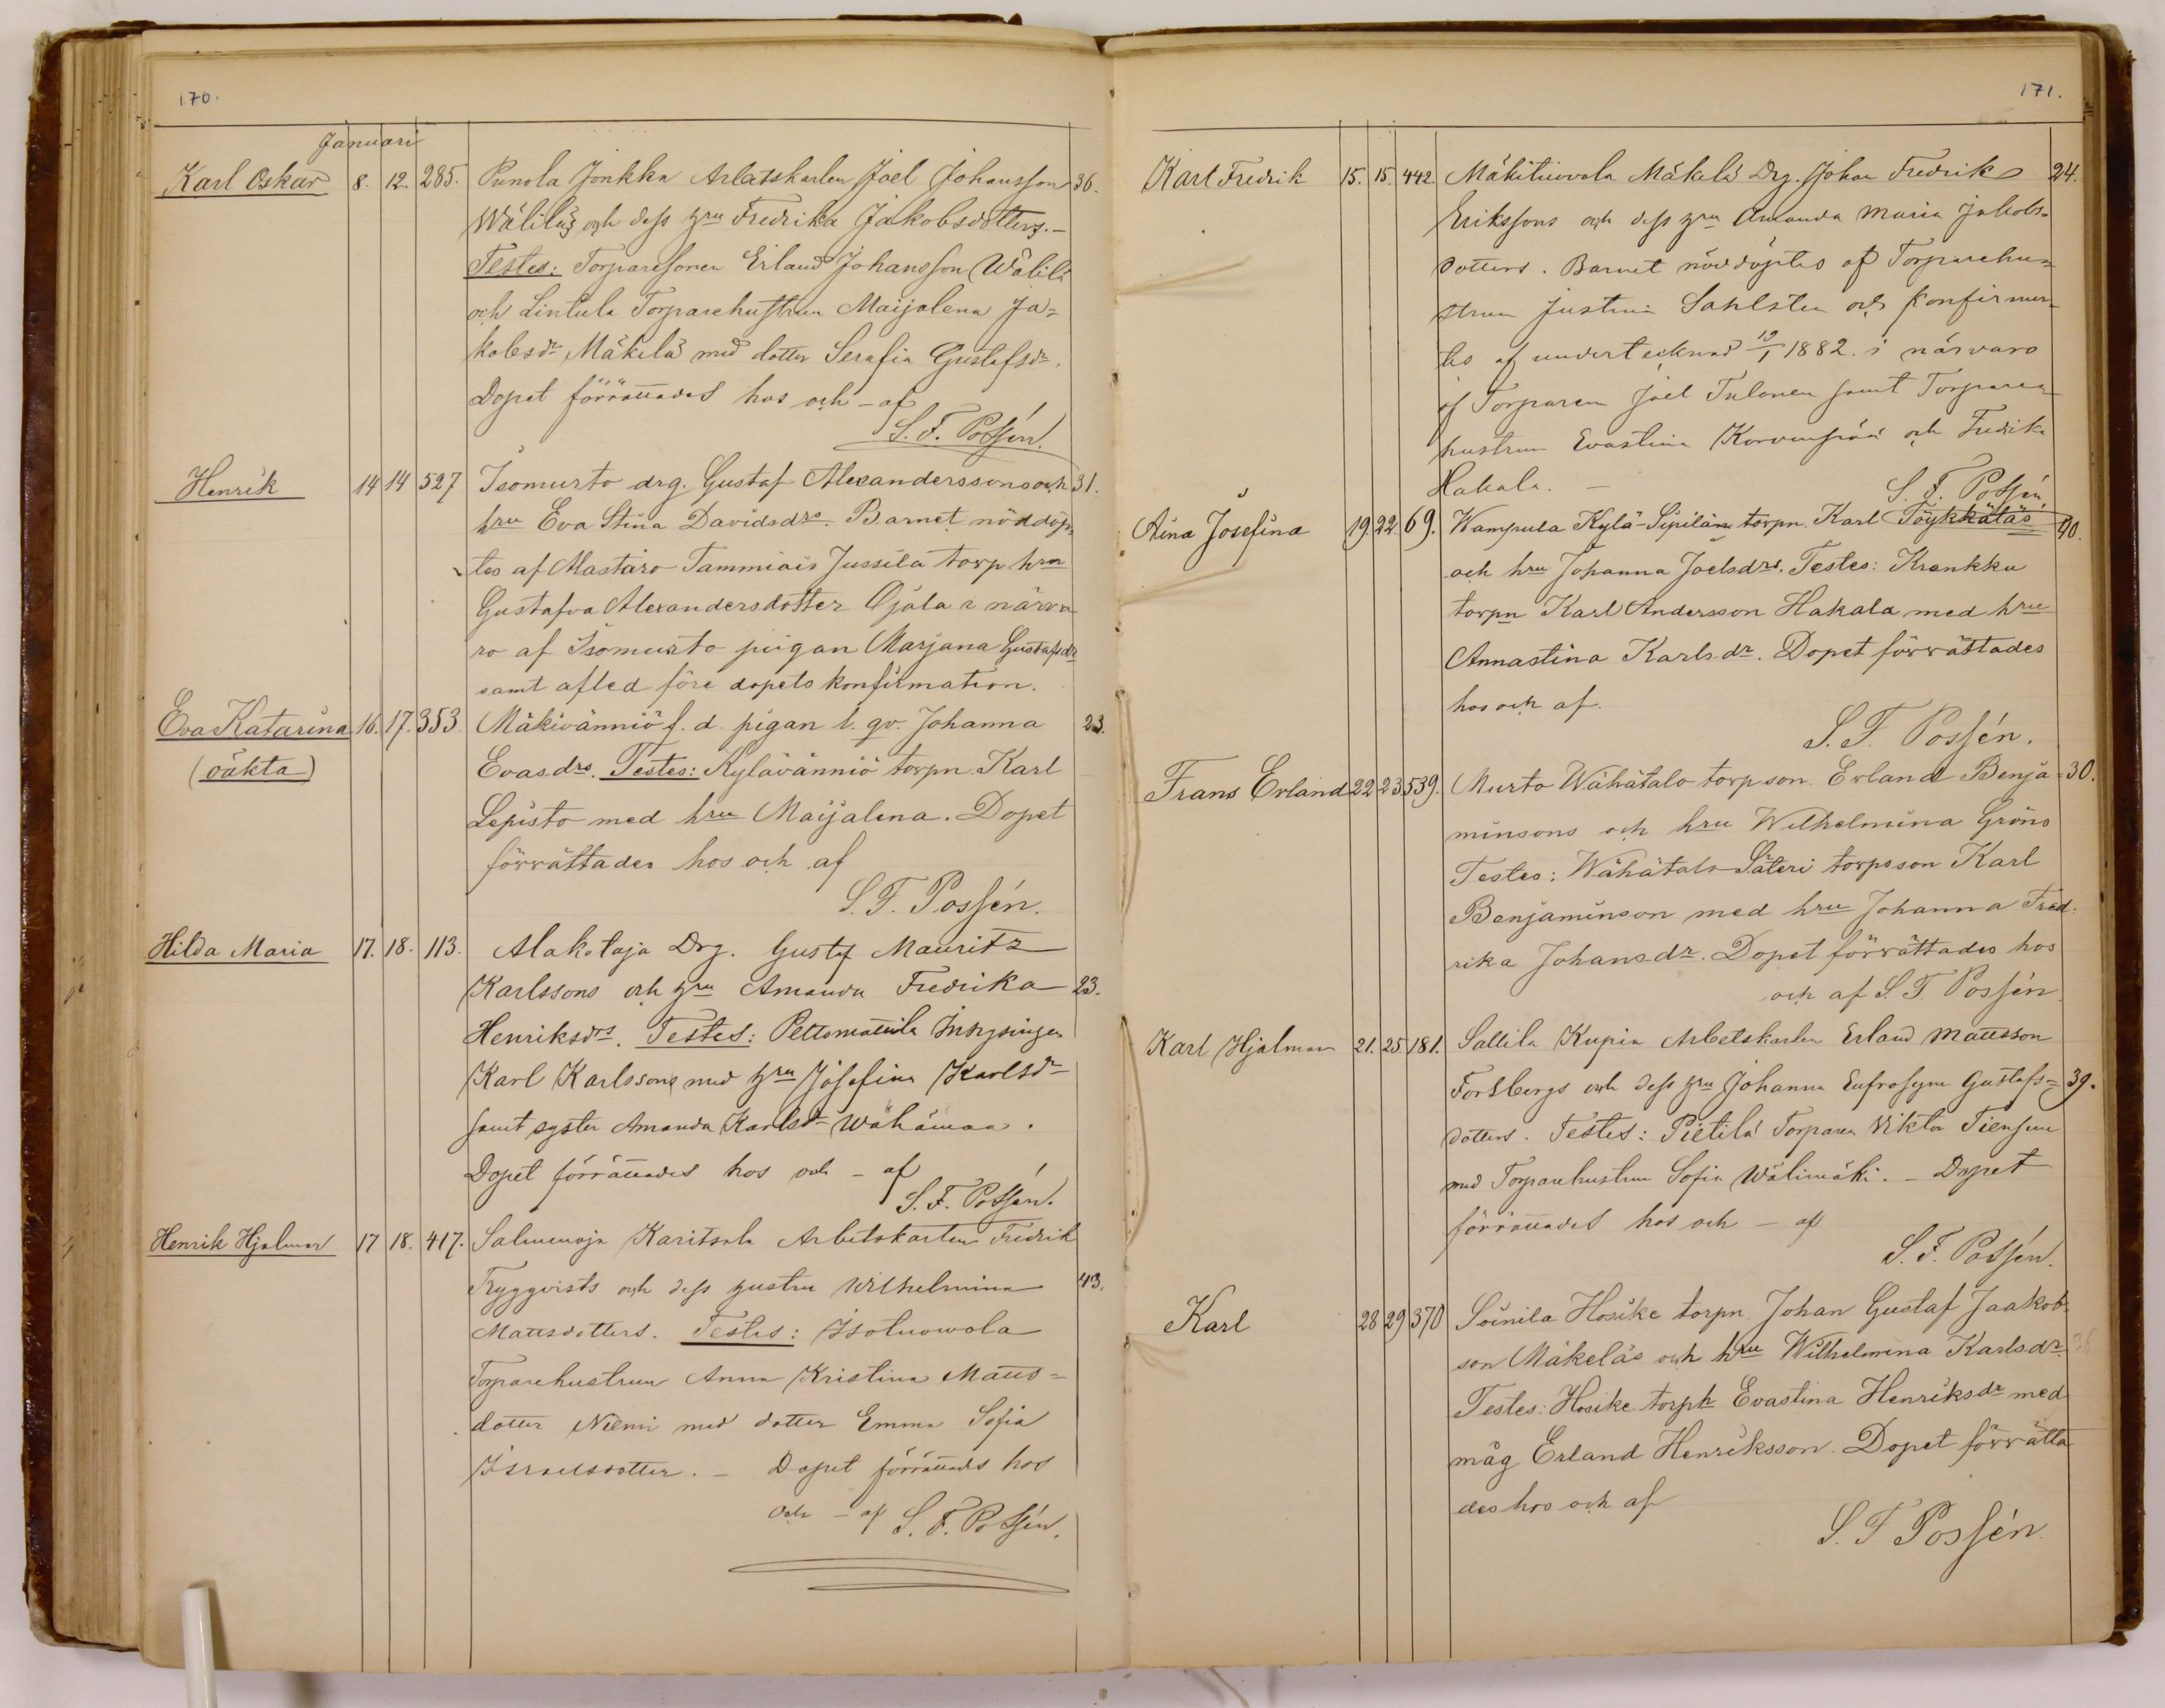 170.
Januari
Karl Oskar 8. 12. 285. Punola Jonkka Arbetskarlen Joel Johansson 36.
Wäliläs och dess hru Fredrika Jakobsdotters.-
Testes: Torparesonen Erland Johansson Wälilä
och Lintula Torparehustrun Maijalena Ja=
kobsdr Mäkelä med dotter Serafia Gustafsdr.
Dopet förrättades hos och - af
S. F. Possén.
Henrik 14 14 527 Isomurto drg. Gustaf Alexanderssons och 31.
hru Eva Stina Davidsdrs. Barnet nöddöp-
tes af Alastaro Tammiais Jussila torp hru
Gustafva Alexandersdotter Ojala i närva-
ro af Isomurto pigan Marjana Gustafsdr
samt afled före dopets konfirmation.
Eva Katarina 16. 17. 353. Mäkivänniö f. d. pigan l. qv. Johanna 23.
(oäkta) Evasdrs. Testes: Kylävänniö torpn. Karl
Lepisto med hru Maijalena. Dopet
förrättades hos och af
S. F. Possén.
Hilda Maria 17. 18. 113. Alakotaja Drg. Gustaf Mauritz
Karlssons och hru Amanda Fredrika 23.
Henriksdrs. Testes: Peltomattila Inhysingen
Karl Karlssons med hru Josefina Karlsdr
samt syster Amanda Karlsdr Wähämaa.
Dopet förrättades hos och - af
S. F. Possén.
Henrik Hjalmar 17 18. 417. Salmenoja Karitsala Arbetskarlen Fredrik
Tryggvists och dess hustru Wilhelmina 43.
Mattsdotters. Testes: Isotuowola
Torparehustrun Anna Kristina Matts=
dotter Niemi med dotter Emma Sofia
Israelsdotter. - Dopet förrättades hos
och - af S. F. Possén.
171.
Karl Fredrik 15. 15. 442. Mäkituovola Mäkelä Drg. Johan Fredrik 24.
Erikssons och dess hru Amanda Maria Jakobs=
dotters. Barnet nöddöptes af Torparehu=
strun Justina Sahlsten och konfirmer=
tes af undertecknad 19/1 1882. i närvaro
af Torparen Joel Tulonen samt Torpare=
hustrun Evastina Korvenpää och Fredrika
Hakala. - S. F. Possén.
Aina Josefina 19. 22. 69. Wampula Kylä-Sipilän torpn. Karl Töykkäläs 40.
och hru Johanna Joelsdrs. Testes: Krankku
torpn Karl Andersson Hakala med hru
Annastina Karlsdr. Dopet förrättades
hos och af.
S. F. Possén.
Frans Erland 22 23 539. Murto Wähätalo torpson. Erland Benja= 30.
minsons och hru Wilhelmina Gröns
Testes: Wähätalo Säteri torpsson Karl
Benjaminson med hru Johanna Fred-
rika Johansdr. Dopet förrättades hos
och af S. F. Possén.
Karl Hjalmar 21. 25. 181. Sallila Kupia Arbetskarlen Erland Mattsson
Forsbergs och dess hru Johanna Eufrosyne Gustafs= 39.
dotters. Testes: Pietilä Torparen Viktor Tiensuu
med Torparehustrun Sofia Wälimäki. - Dopet
förrättades hos och - af
S. F. Possén.
Karl 28 29 370 Soinila Hosike torpn Johan Gustaf Jaakob-
son Mäkeläs och hru Wilhelmina Karlsdr. 36
Testes: Hosike torph Evastina Henriksdr med
måg Erland Henriksson. Dopet förrätta
des hos och af
S. F. Possén.